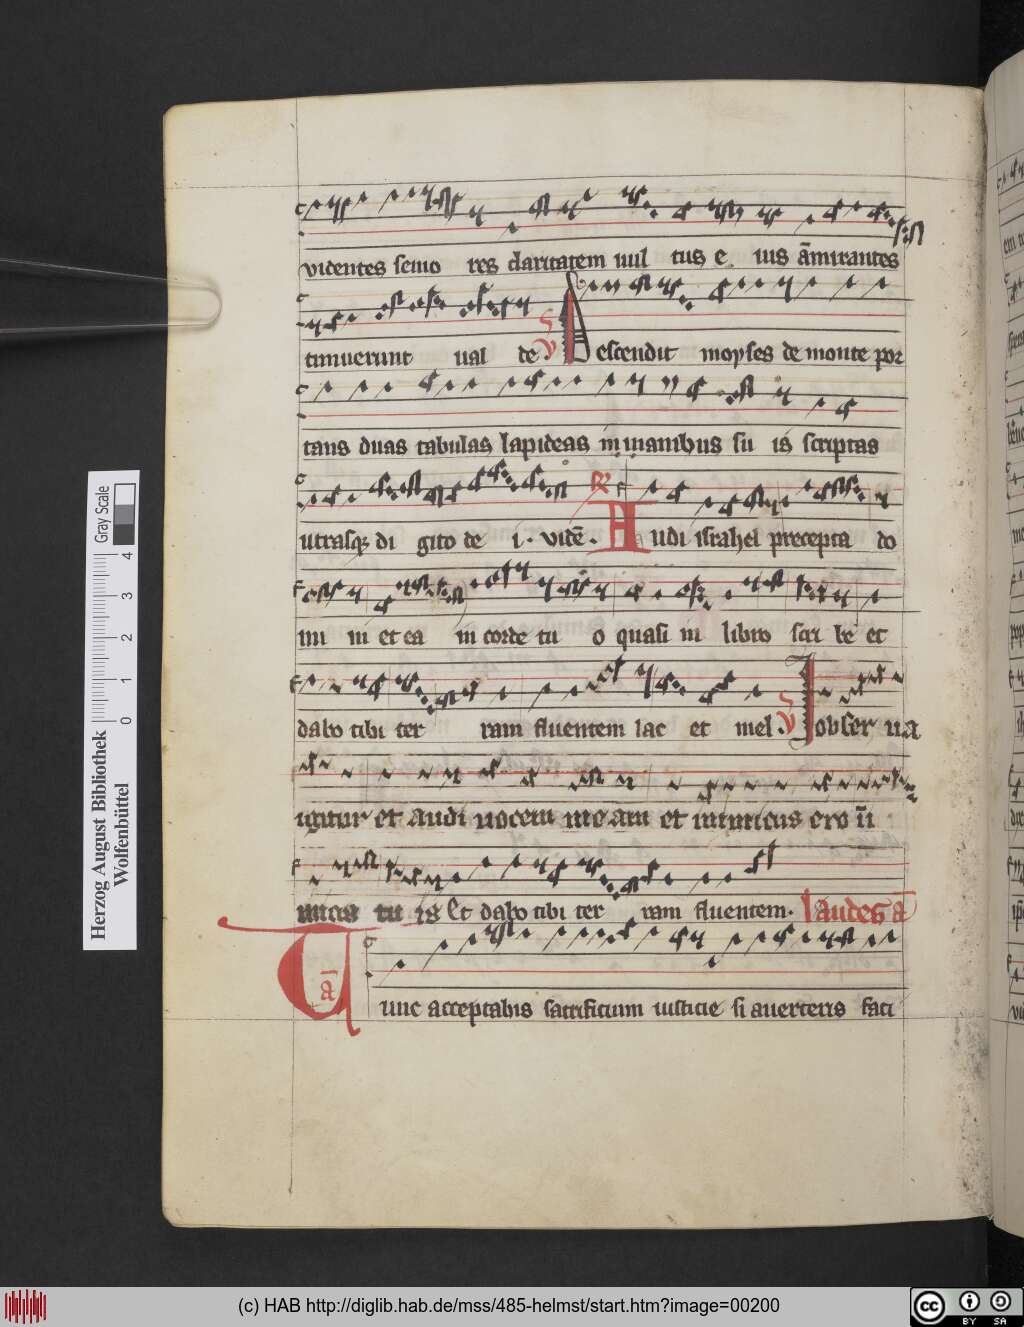 videntes senio res claritatem uul tus e ius āmirantes
timuerunt ual de v Descendit moyses de monte por
tans duas tabulas lapideas in manibus su is scriptas
utrasq; di gito de i. vidē. R Audi israhel precepta do
mi ni et ea in corde tu o quasi in libro scri be et
dabo tibi ter ram fluentem lac et mel. v Iobser ua
igitur et audi uocem me am et inimicus ero īi
micis tu is Et dabo tibi ter ram fluentem. laudes ā
ā Tunc acceptabis sacrificium iusticie si auerteris faci
Herzog August Bibliothek
Wolfenbüttel
0 1 2 3 4
Gray Scale
(c) HAB http://diglib.hab.de/mss/485-helmst/start.htm?image=00200
cc BY SA